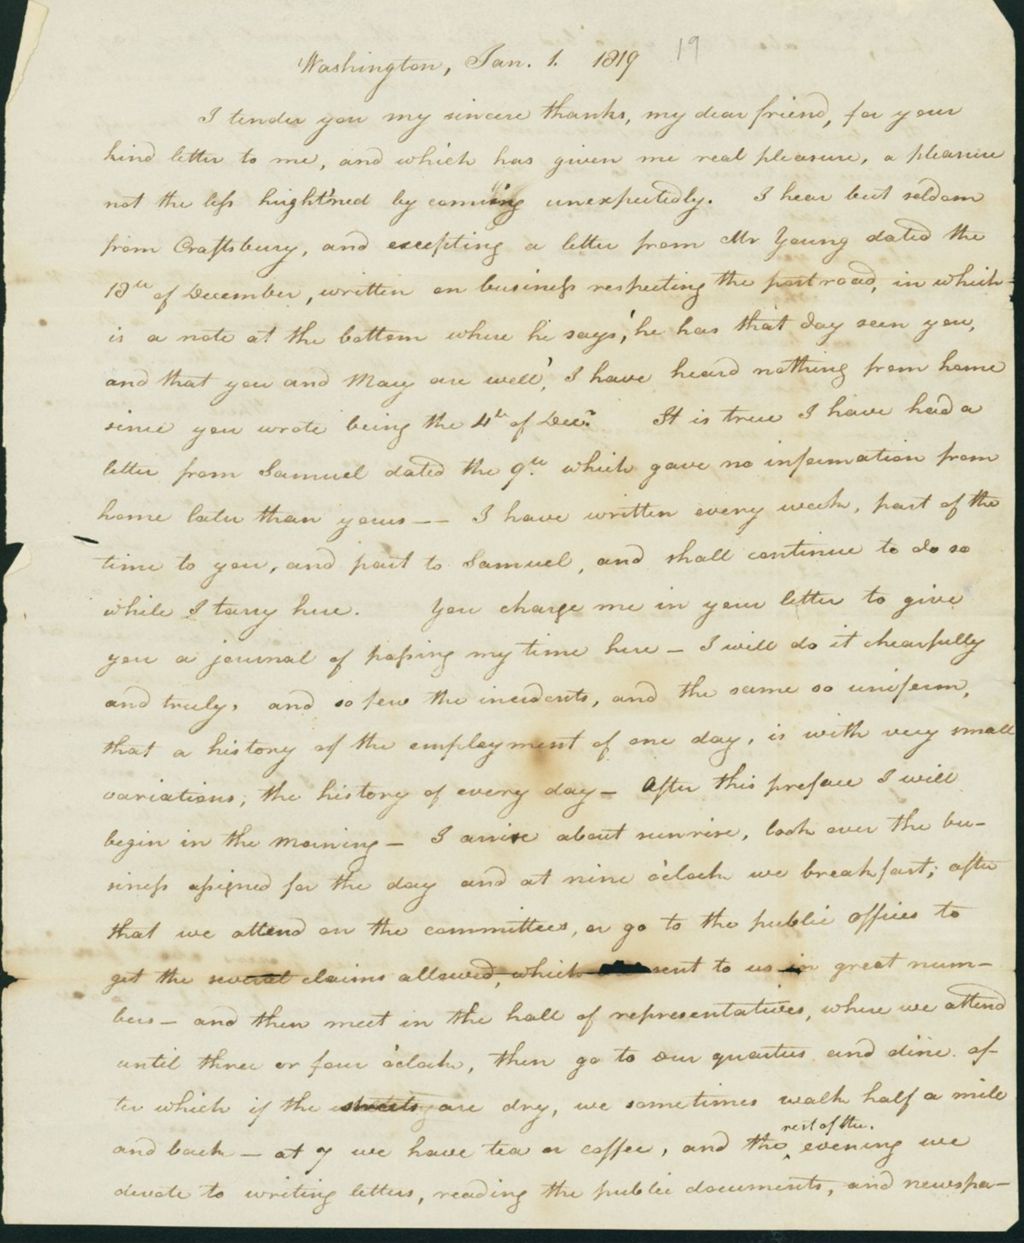 Washington, Jan. 1. 1819 19
I tender you my sincere thanks, my dear friend, for your
kind letter to me, and which has given me real pleasure, a pleasure
not the less hight'ned by coming unexpectedly. I hear but seldom
from Craftsbury, and excepting a letter from Mr Young dated the
18th of December, written on business respecting the post road, in which
is a note at the bottom where he says, 'he has that day seen you,
and that you and Mary are well', I have heard nothing from home
since you wrote being the 4th of Decr. It is true I have had a
letter from Samuel dated the 9th which gave no information from
home later than yours —— I have written every week, part of the
time to you, and part to Samuel, and shall continue to do so
while I tarry here. You charge me in your letter to give
you a journal of passing my time here — I will do it chearfully
and truly, and so few the incidents, and the same so uniform,
that a history of the employment of one day, is with very small
variations, the history of every day — After this preface I will
begin in the morning — I arise about sunrise, look over the bu-
siness assigned for the day and at nine o'clock we breakfast; after
that we attend on the committees, or go to the public offices to
get the several claims allowed, which sent to us in great num-
bers — and then meet in the hall of representatives, where we attend
until three or four o'clock, then go to our quarters and dine. af-
ter which if the streets are dry, we sometimes walk half a mile
and back — at 7 we have tea or coffee, and the rest of the evening we
devote to writing letters, reading the public documents, and newspa-